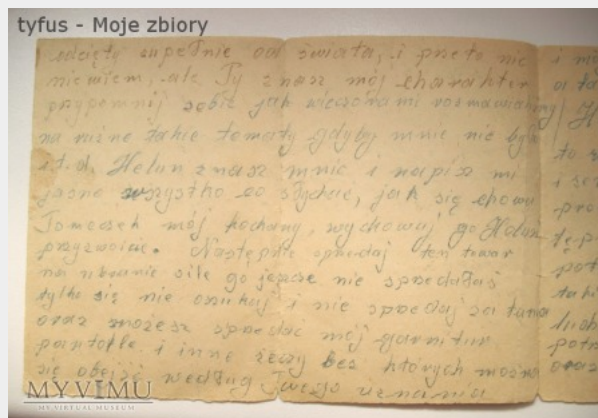 tyfus - Moje zbiory
odcięty zupełnie od świata, i przeto nic
nie wiem, ale Ty znasz mój charakter
przypomnij sobie jak wieczorami rozmawialiśmy
na różne takie tematy gdyby mnie nie było
i t.d. Helun znasz mnie i napisz mi
jasno wszystko co słychać, jak się chowa
Tomeczek mój kochany, wychowaj go Helun
przyzwoicie. Następnie sprzedaj ten towar
na ubranie go jeszcze nie sprzedałaś
tylko się nie oszukaj i nie sprzedaj za tanio
oraz możesz sprzedać mój garnitur
pantofle i inne rzeczy bez których można
się obejść według Twego uznania
MYVIMU
MY VIRTUAL MUSEUM